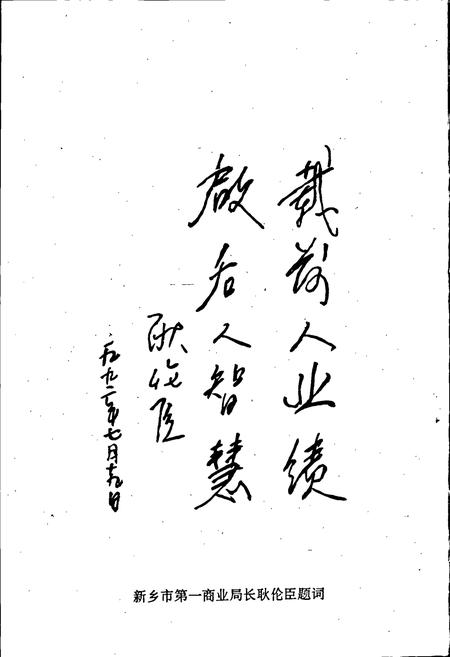 载前人业绩
启后人智慧
耿伦臣
一九九二年七月十九日
新乡市第一商业局长耿伦臣题词